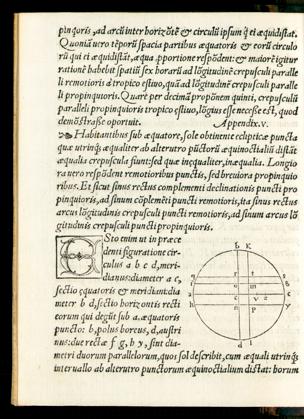 pinquoris, ad arcũ inter horizõtẽ & circulũ ipsum q̃ ei æquidistat.
Quoniã uero tẽporũ spacia partibus æquatoris & eorũ circulo
rũ qui ei æquidistãt, æqua proportione respõdent: & maiorẽ igitur
rationẽ habebit spatiũ sex horarũ ad lõgitudinẽ crepusculi paralle
li remotioris á tropico estiuo, quã ad longitudinẽ crepusculi paralle
li propinquioris. Quare per decimã proponẽm quinti, crepusculũ
paralleli propinquioris tropico estiuo, lõgius esse necesse est, quod
demõstrasse oportuit. Appendix. v.
Habitantibus sub æquatore, sole obtinente eclipticæ puncta
quæ utrinq; æqualiter ab alterutro pũctorũ æquinoctialiũ distãt
æqualia crepuscula fiunt: sed quæ inęqualiter, inæqualia. Longio
ra uero respõdent remotioribus punctis, sed breuiora propinquio
ribus. Et sicut sinus rectus complementi declinationis puncti pro
pinquioris, ad sinum cõplemẽti puncti remotioris, ita sinus rectus
arcus lõgitudinis crepusculi puncti remotioris, ad sinum arcus lõ
gitudinis crepusculi puncti propinquioris.
Esto enim ut in præce
denti figuratione cir-
culus a b c d, meri-
dianus: diameter a c,
sectio ęquatoris & meridiani: dia
meter b d, sectio horizontis recti
eorum qui degũt sub a. æquatoris
puncto: b, polus boreus, d, austri
nus: duæ rectæ f g, h y, sint dia-
metri duorum parallelorum, quos sol describit, cum æquali utrinq;
interuallo ab alterutro punctorum æquinoctialium distat: borum
b K
d l